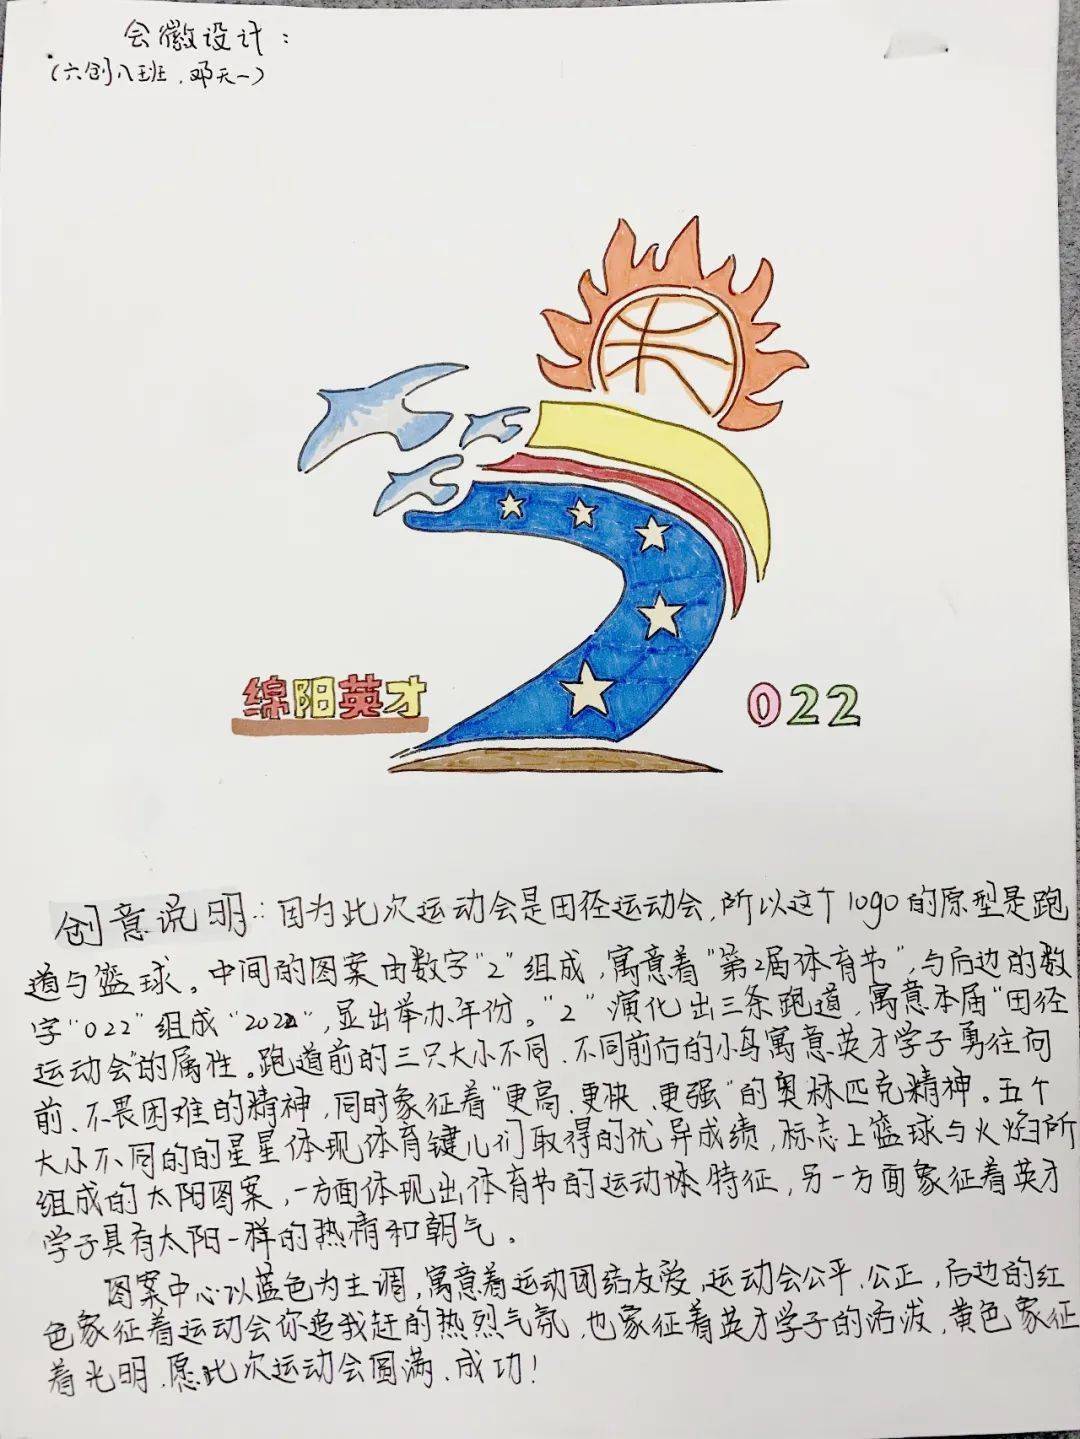 会徽设计：
（六创八班、邓天一）
绵阳英才
022
创意说明：因为此次运动会是田径运动会，所以这个logo的原型是跑
道与篮球。中间的图案由数字“2”组成，寓意着“第2届体育节”，与后边的数
字“022”组成“2022”，显出举办年份。“2”演化出三条跑道，寓意本届“田径
运动会”的属性。跑道前的三只大小不同、不同前后的小鸟寓意英才学子勇往向
前、不畏困难的精神，同时象征着“更高、更快、更强”的奥林匹克精神。五个
大小不同的的星星体现体育健儿们取得的优异成绩，标志上篮球与火焰所
组成的太阳图案，一方面体现出体育节的运动体特征，另一方面象征着英才
学子具有太阳一样的热情和朝气。
图案中心以蓝色为主调，寓意着运动团结友爱、运动会公平、公正，后边的红
色象征着运动会你追我赶的热烈气氛，也象征着英才学子的活泼，黄色象征
着光明、愿此次运动会圆满、成功！